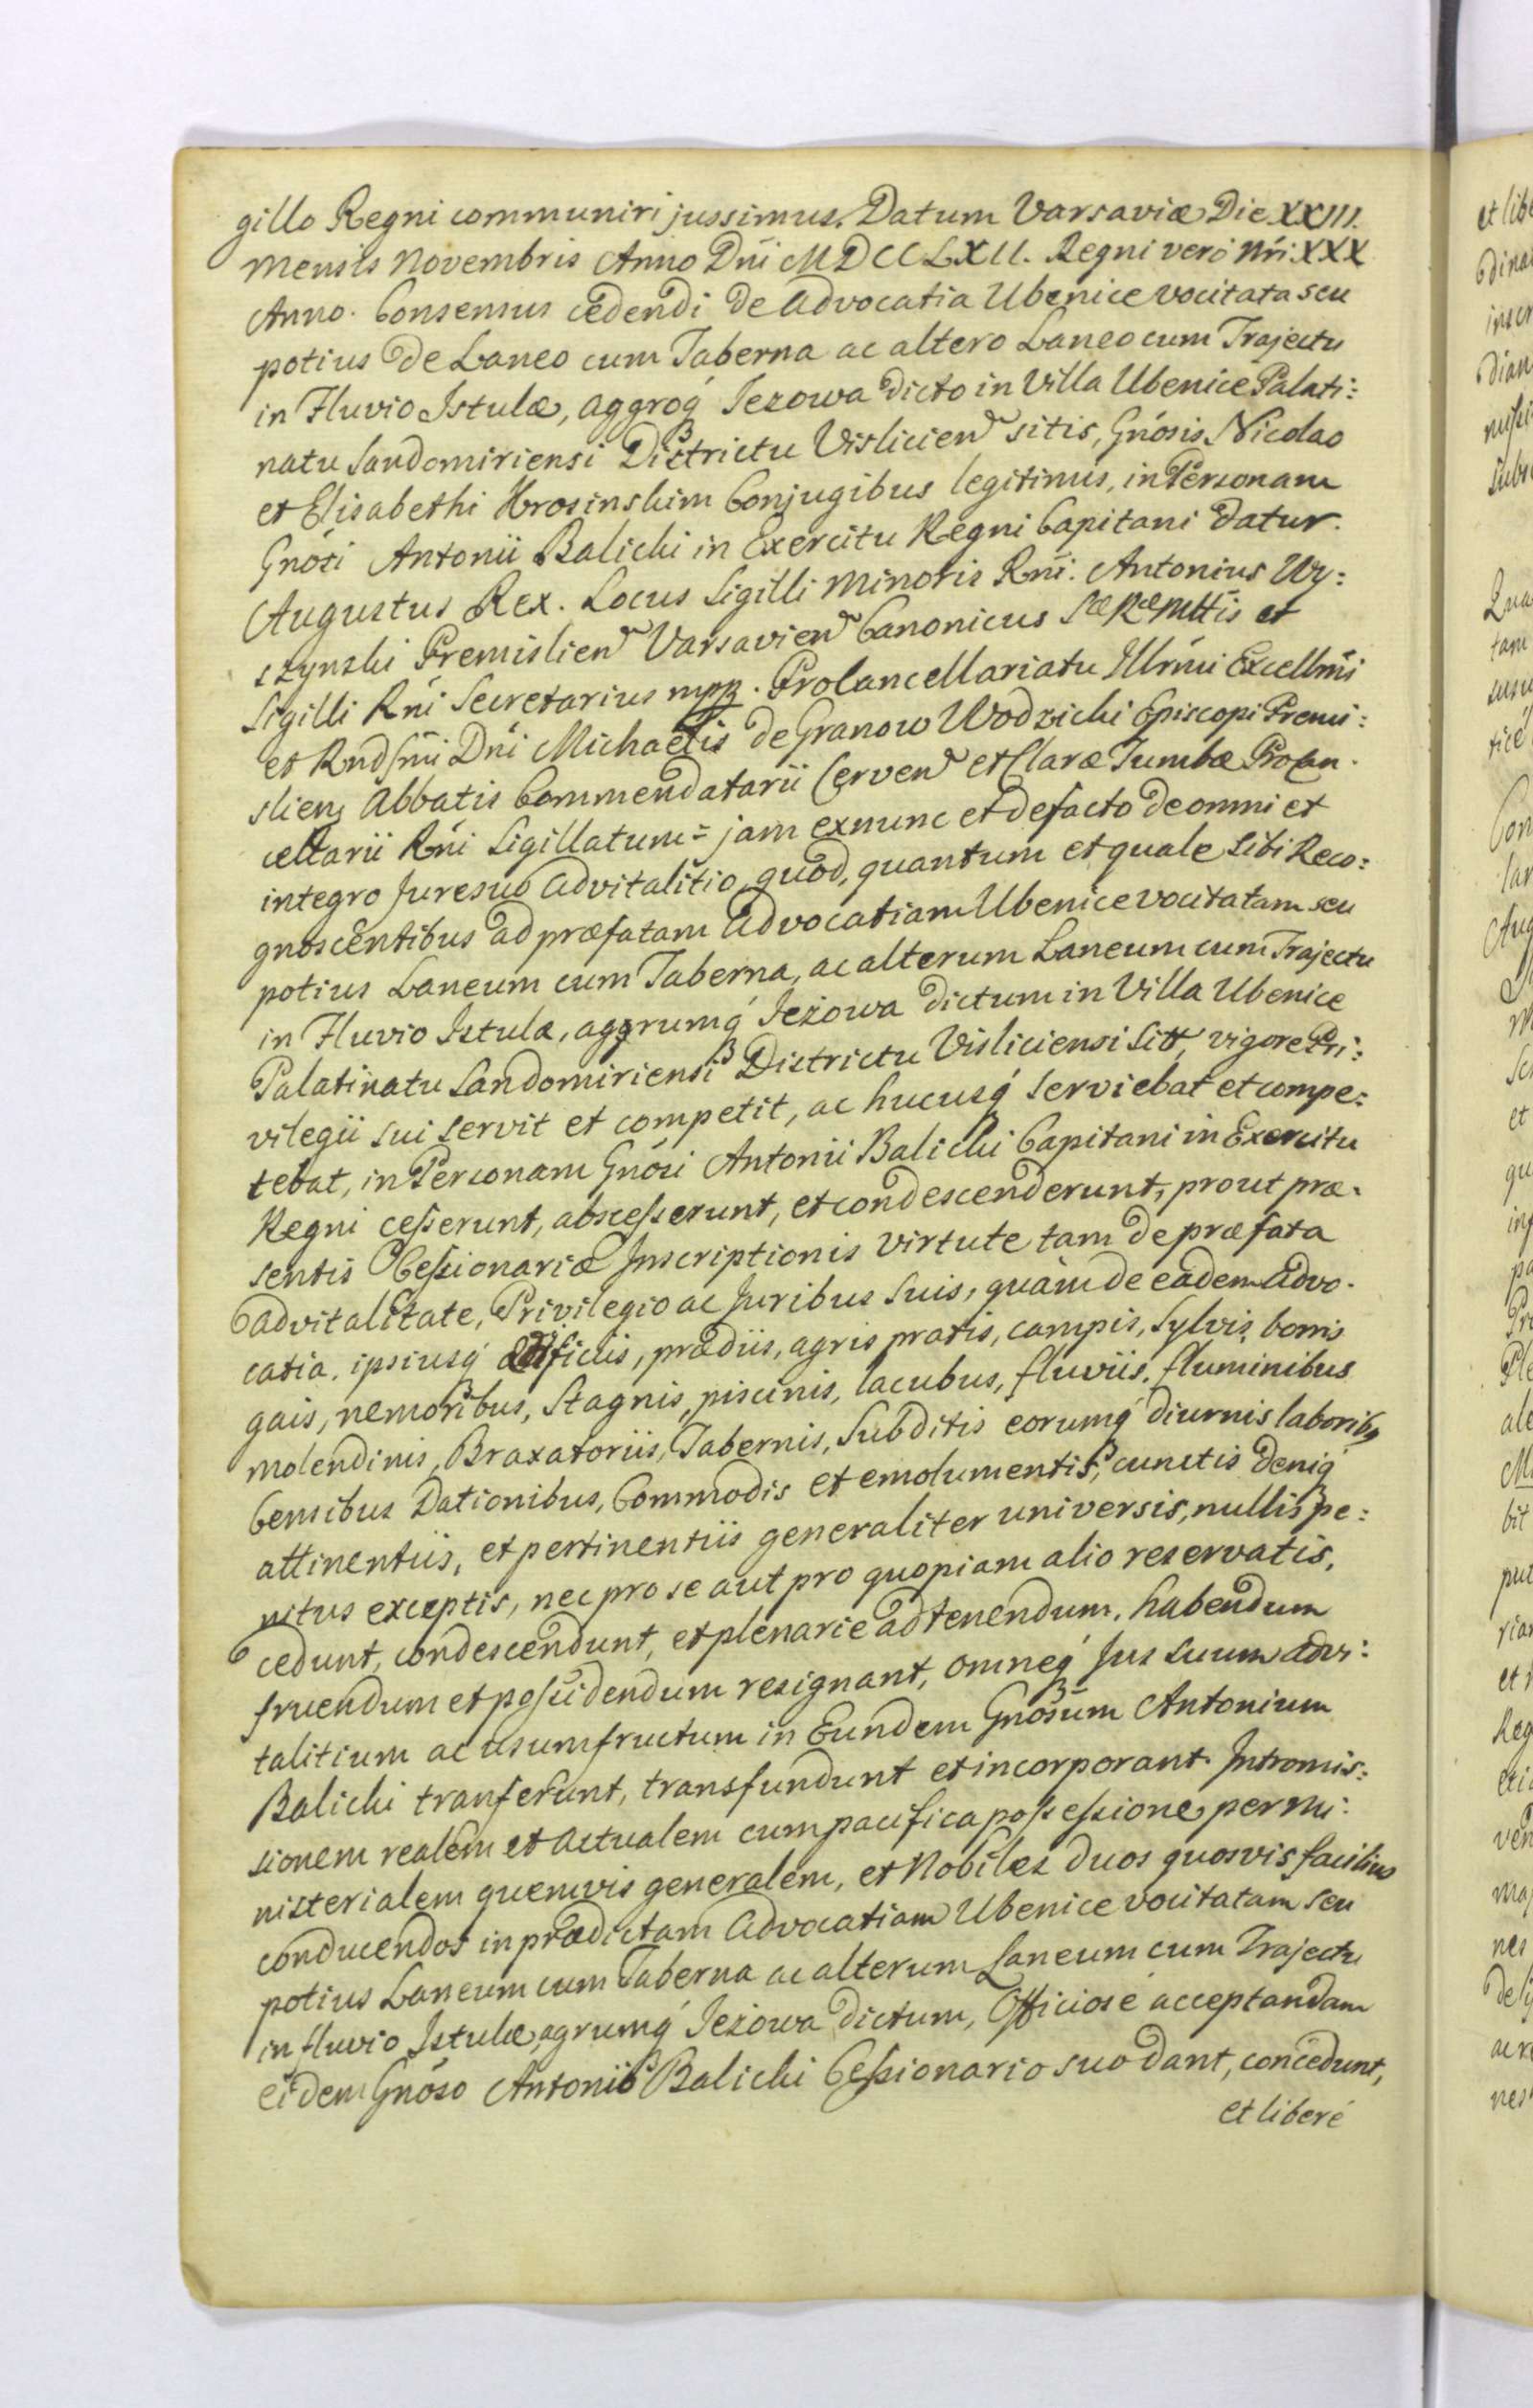 gillo Regni communiri jussimus. Datum Varsaviæ Die XXIII.
Mensis Novembris Anno Dni MDCCLXII. Regni vero Nri XXX
Anno. Consensus cedendi de Advocatia Ubenice vocitata seu
potius de Laneo cum Taberna ac altero Laneo cum Trajectu
in Fluvio Istulæ, aggroq́ Jezowa dicto in Villa Ubenice Palati:
natu Sandomiriensi Districtu Vislicien sitis, Gnosis Nicolao
et Elisabethi Krosinskim Conjugibus legitimis, in Personam
Gnosi Antonii Balicki in Exercitu Regni Capitani datur.
Augustus Rex. Locus Sigilli Minoris Rni. Antonius Wy:
szynski Premislien Varsavien Canonicus Sæ Ræ Mttis et
Sigilli Rni Secretarius mpp. Procancellariatu Illrmi Excellmi
et Rndsmi Dni Michaelis de Granow Wodzicki Episcopi Premi:
slien Abbatis Commendatarii Cerven et Claræ Tumbæ Procan.
cellarii Rni Sigillatum = jam exnunc et defacto de omni et
integro Jure suo advitalitio, quod, quantum et quale sibi Reco:
gnoscentibus ad præfatam Advocatiam Ubenice vocitatam seu
potius Laneum cum Taberna, ac alterum Laneum cum Trajectu
in Fluvio Istulæ, aggrumq́ Jeżowa dictum in Villa Ubenice
Palatinatu Sandomiriensi Districtu Visliciensi Sitt, vigore Pri:
vilegii sui servit et competit, ac hucusq́ serviebat et compe:
tebat, in Personam Gnosi Antonii Balicki Capitani in Exercitu
Regni cesserunt, abscesserunt, et condescenderunt, prout præ.
sentis Cessionariæ Inscriptionis virtute tam de præfata
advitalitate, Privilegio ac Juribus suis, quàm de eadem Advo.
catia, ipsiusq́ ædificiis, prædiis, agris pratis, campis, Sylvis, borris
gais, nemoribus, Stagnis, piscinis, lacubus, fluviis, fluminibus
molendinis, Braxatoriis, Tabernis, Subditis eorumq́ diurnis laboribq
Censibus Dationibus, Commodis et emolumentis, cunctis deniq́
attinentiis, et pertinentiis generaliter universis, nullis pe:
nitus exceptis, nec pro se aut pro quopiam alio reservatis,
cedunt, condescendunt, et plenarie ad tenendum, habendum
fruendum et possidendum resignant, omneq́ Jus suum advi:
talitium ac usumfructum in Eundem Gnosum Antonium
Balicki tranferunt, transfundunt et incorporant. Intromis:
sionem realem et actualem cum pacifica possessione per Mi:
nisterialem quemvis generalem, et Nobiles duos quosvis facilius
conducendos in prædictam Advocatiam Ubenice vocitatam seu
potius Laneum cum Taberna ac alterum Laneum cum Trajectu
in fluvio Istulæ, agrumq́ Jeżowa dictum, Officiosé acceptandam
eidem Gnoso Antonio Balicki Cessionario suo dant, concedunt,
et liberé